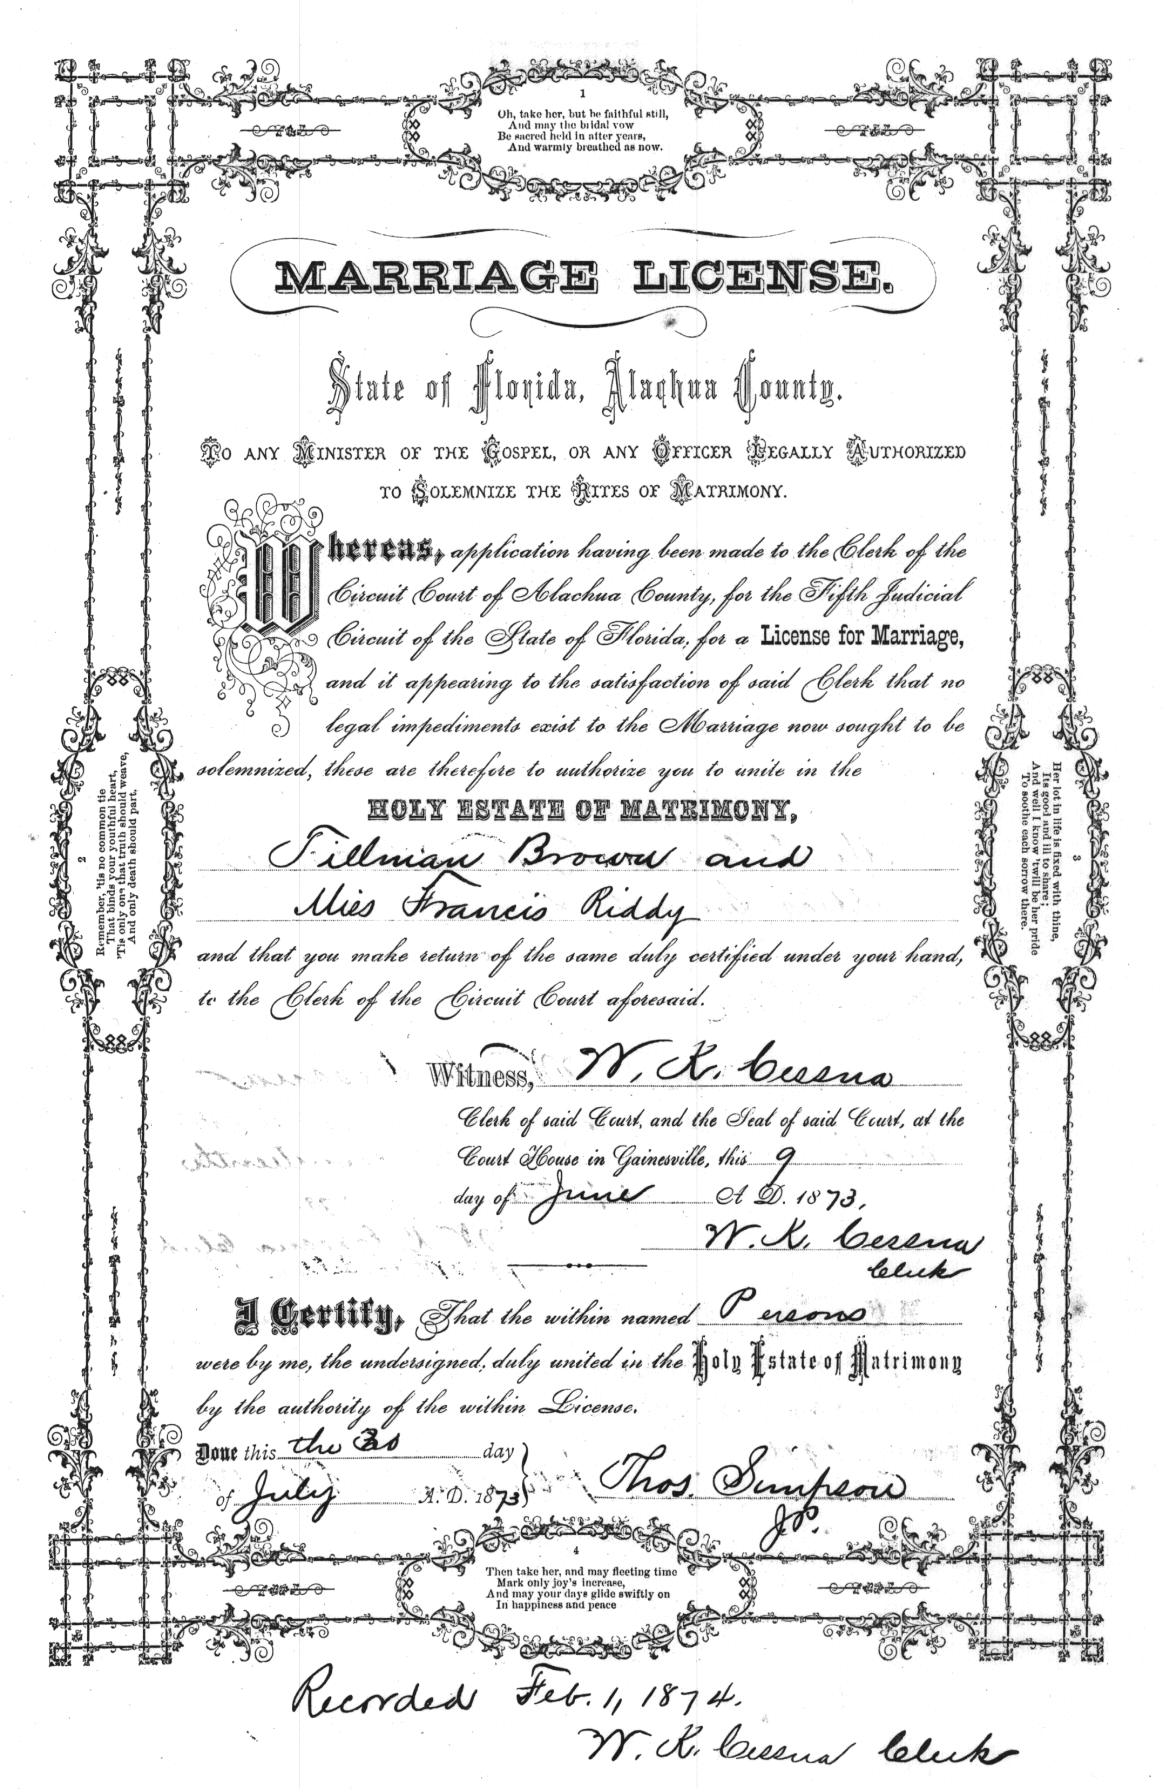 1
Oh, take her, but be faithful still,
And may the bridal vow
Be sacred held in after years,
And warmly breathed as now.
MARRIAGE LICENSE.
State of Florida, Alachua County.
TO ANY MINISTER OF THE GOSPEL, OR ANY OFFICER LEGALLY AUTHORIZED
TO SOLEMNIZE THE RITES OF MATRIMONY.
Whereas, application having been made to the Clerk of the
Circuit Court of Alachua County, for the Fifth Judicial
Circuit of the State of Florida, for a License for Marriage,
and it appearing to the satisfaction of said Clerk that no
legal impediments exist to the Marriage now sought to be
solemnized, these are therefore to authorize you to unite in the
HOLY ESTATE OF MATRIMONY,
Tillman Brown and
Miss Francis Riddy
and that you make return of the same duly certified under your hand,
to the Clerk of the Circuit Court aforesaid.
2
Remember, 'tis no common tie
That binds your youthful heart,
'Tis only one that truth should weave,
And only death should part.
3
Her lot in life is fixed with thine,
Its good and ill to share;
And well I know 'twill be her pride
To soothe each sorrow there.
Witness, W. K. Cessna
Clerk of said Court, and the Seal of said Court, at the
Court House in Gainesville, this 9
day of June A. D. 1873,
W. K. Cessna
Clerk
I Certify, That the within named Persons
were by me, the undersigned, duly united in the Holy Estate of Matrimony
by the authority of the within License.
Done this the 30 day
of July A. D. 1873
Thos. Simpson
J.P.
4
Then take her, and may fleeting time
Mark only joy's increase,
And may your days glide swiftly on
In happiness and peace
Recorded Feb. 1, 1874.
W. K. Cessna Clerk